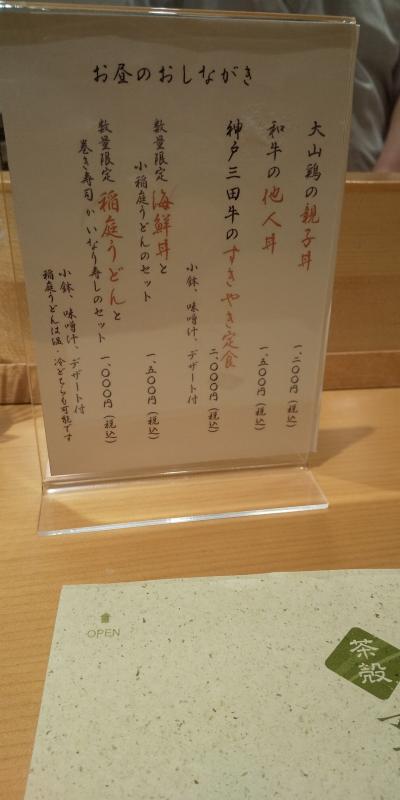 お昼のおしながき
大山鶏の親子丼
一、二〇〇円(税込)
和牛の他人丼
一、五〇〇円(税込)
神戸三田牛のすきやき定食
二、〇〇〇円(税込)
小鉢、味噌汁、デザート付
数量限定 海鮮丼と
小稲庭うどんのセット
一、五〇〇円(税込)
数量限定 稲庭うどんと
巻き寿司かいなり寿しのセット
一、〇〇〇円(税込)
小鉢、味噌汁、デザート付
稲庭うどんは温・冷どちらも可能です
OPEN
茶殻